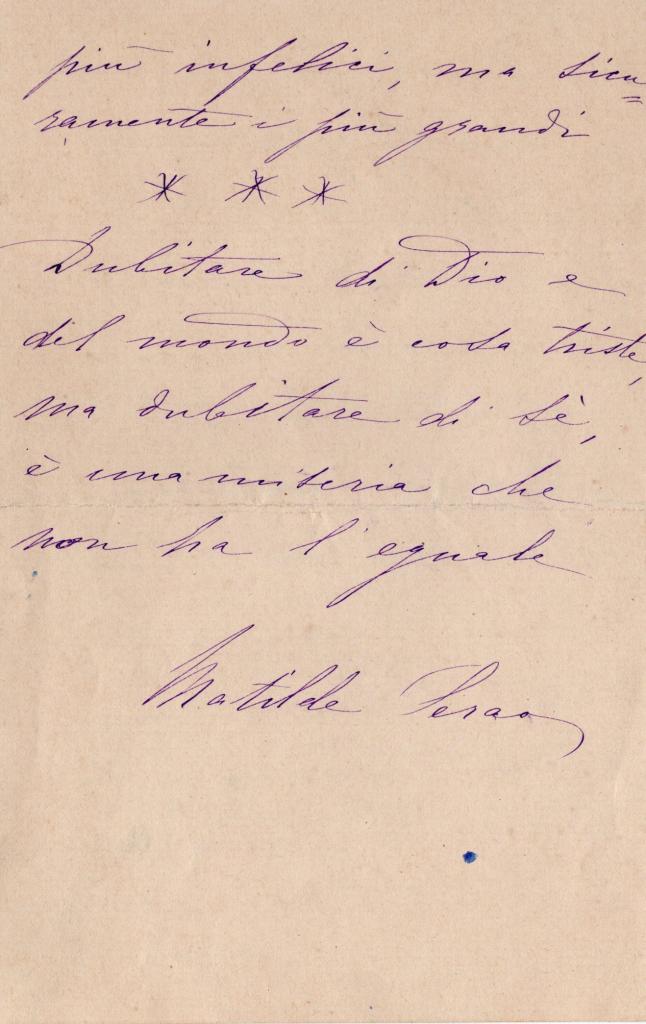 più infelici, ma sicu=
ramente i più grandi
* * *
Dubitare di Dio e
del mondo è cosa triste,
ma dubitare di sè,
è una miseria che
non ha l'eguale
Matilde Serao